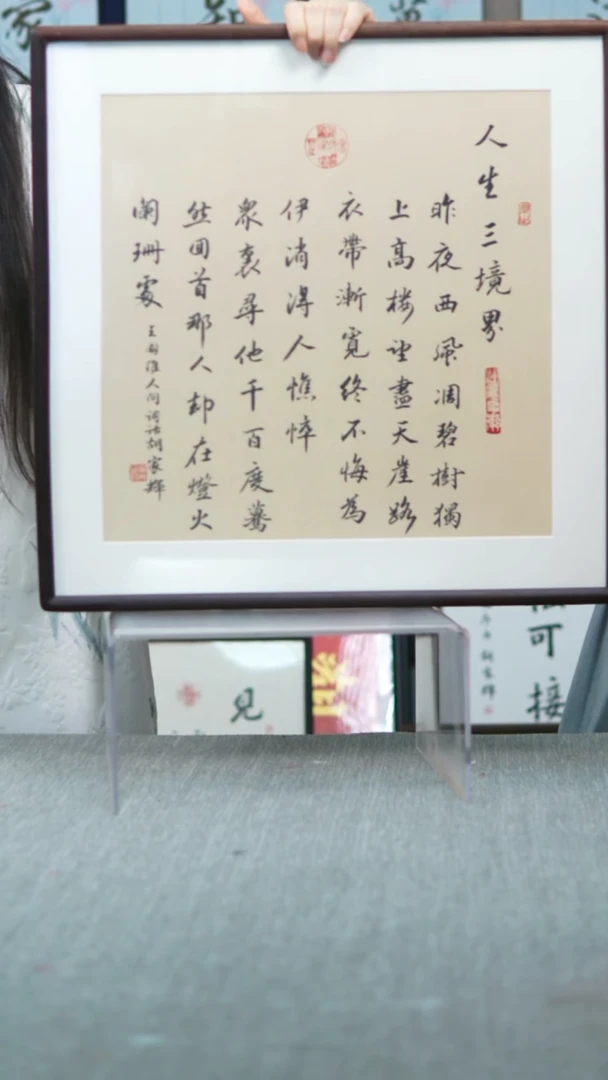 人生三境界
昨夜西風凋碧樹獨
上高樓望盡天崖路
衣帶漸寬終不悔為
伊消得人憔悴
衆裏尋他千百度驀
然回首那人却在燈火
闌珊處
王國維人间词话胡家辉
見
可接